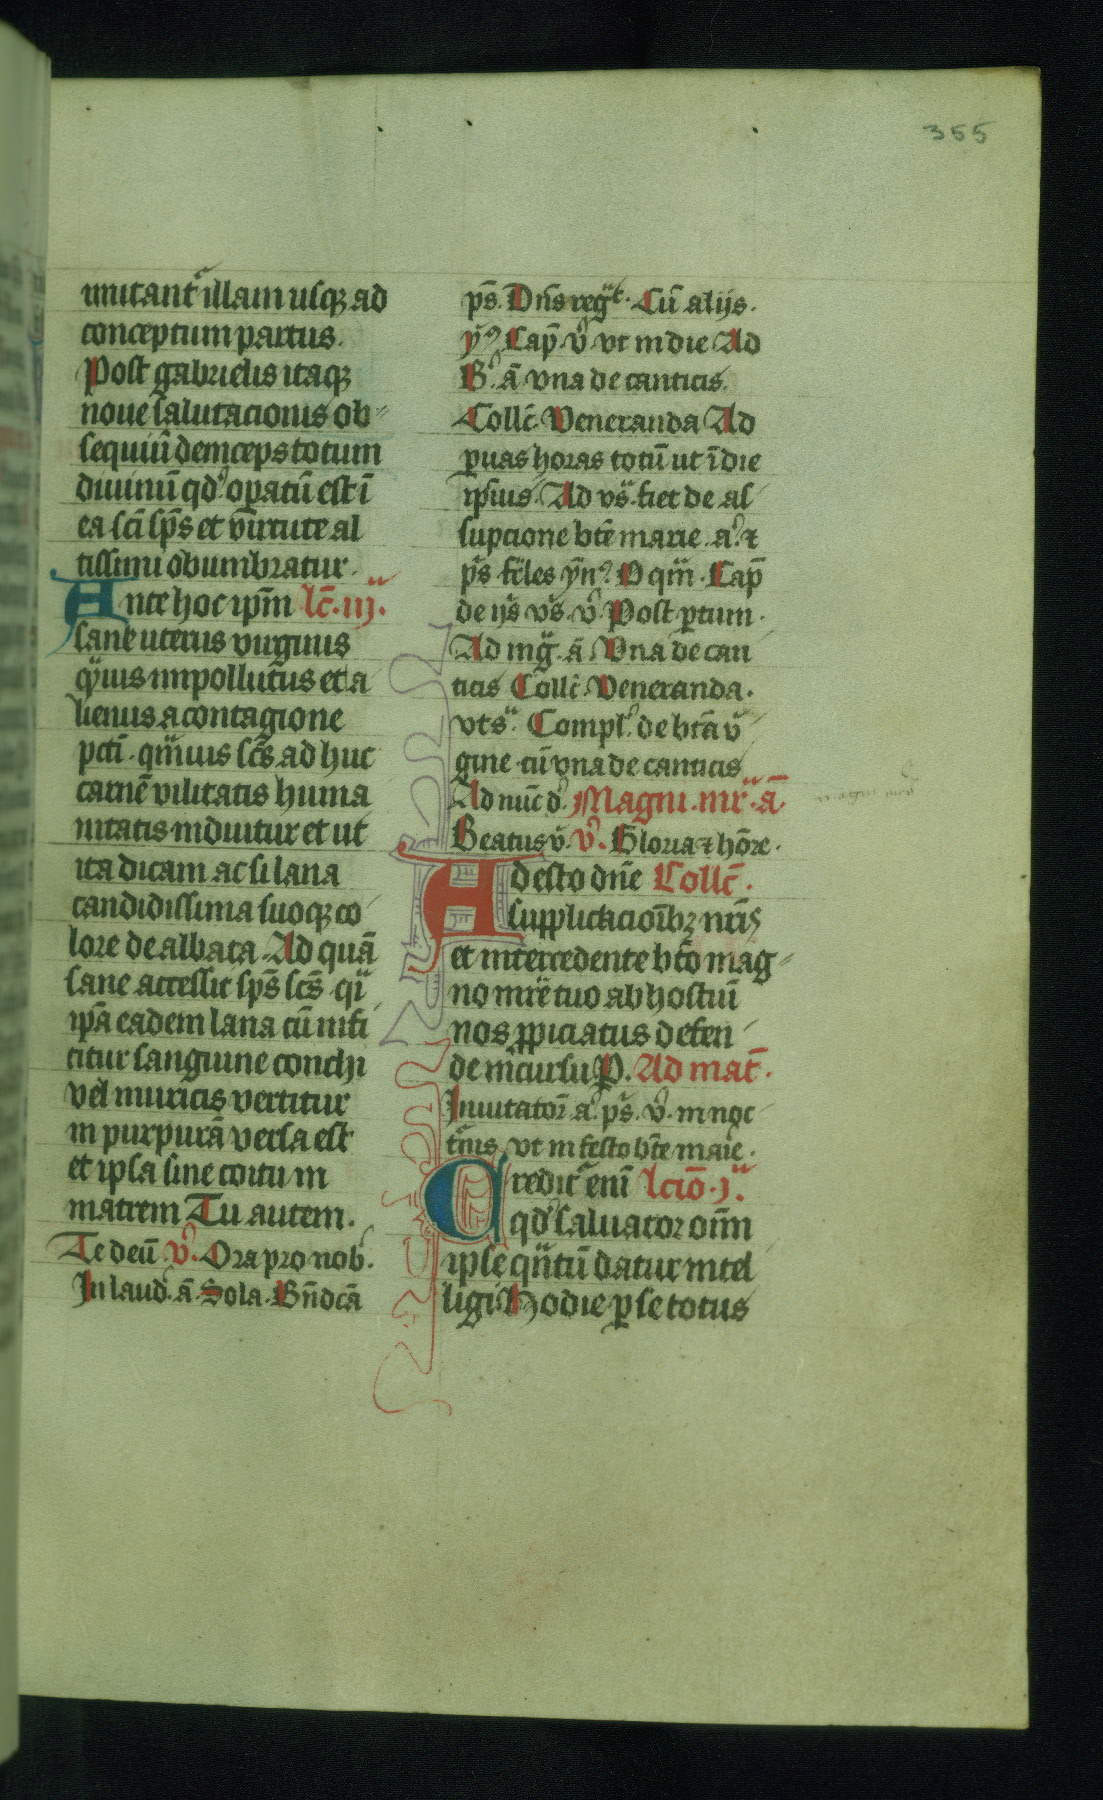 355
imitantᷣ illam usqꝫ ad
conceptum partus.
Post gabrielis itaqꝫ
noue salutacionis ob⸗
sequiū deinceps totum
diuinū qdͦ oꝑatū est ī
ea scī sp̄s et virtute al
tissimi obumbratur.
Ante hoc ip̄m lc̄. iij.
sane uterus virginis
qͣuis impollutus et a
lienus a contagione
pctī. qͣmuis sc̄s ad huc
carnē vilitatis huma
nitatis induitur et ut
ita dicam ac si lana
candidissima suoqꝫ co
lore dealbata. Ad quā
sane accessit sp̄s sc̄s qͣ
ip̄a eadem lana cū infi
titur sanguine conchi
vel muricis vertitur
in purpurā versa est
et ipsa sine coitu in
matrem Tu autem.
Te deū v̾. Ora pro nob̾.
In laud̾. ā Sola. Bn̄dcā
ps̄. Dn̄s regͣt. Cū alijs.
ym̾ꝰ Cap̄ v̾ vt in die Ad
B̾. ā vna de canticis.
Collc̄. Veneranda Ad
ꝑuas horas totū ut ī die
ipsius. Ad vs̄. fiet de as
supcione btē marie. a̾. ⁊
ps̄ fēles yn̄ꝰ. O qͣm. Cap̄
de ijs vs̄. v̾. Post ꝑtum.
Ad mḡ. ā Vna de can
ticis Collc̄. Veneranda.
vt sͣ. Compl̾. de btā v̾
gine cū vna de canticis
Ad nūc d̾. Magni. mr̄. ā.
Beatus v̾. v̾. Gloria ⁊ hōre.
Adesto dn̄e Collc̄.
supplicacioībꝫ nr̄is
et intercedente btō mag⸗
no mr̄e tuo ab hostiū
nos ꝓpiciatus defen
de incursu P. Ad mat̄.
Inuitator̄ a̾. ps̄. v̾. in noc
tᷣnis vt in festo btē maīe.
Creditᷣ enī lcīo. j.
qdͦ saluator om̄
ipse qͣntū datur intel
ligi Hodie ꝑ se totus